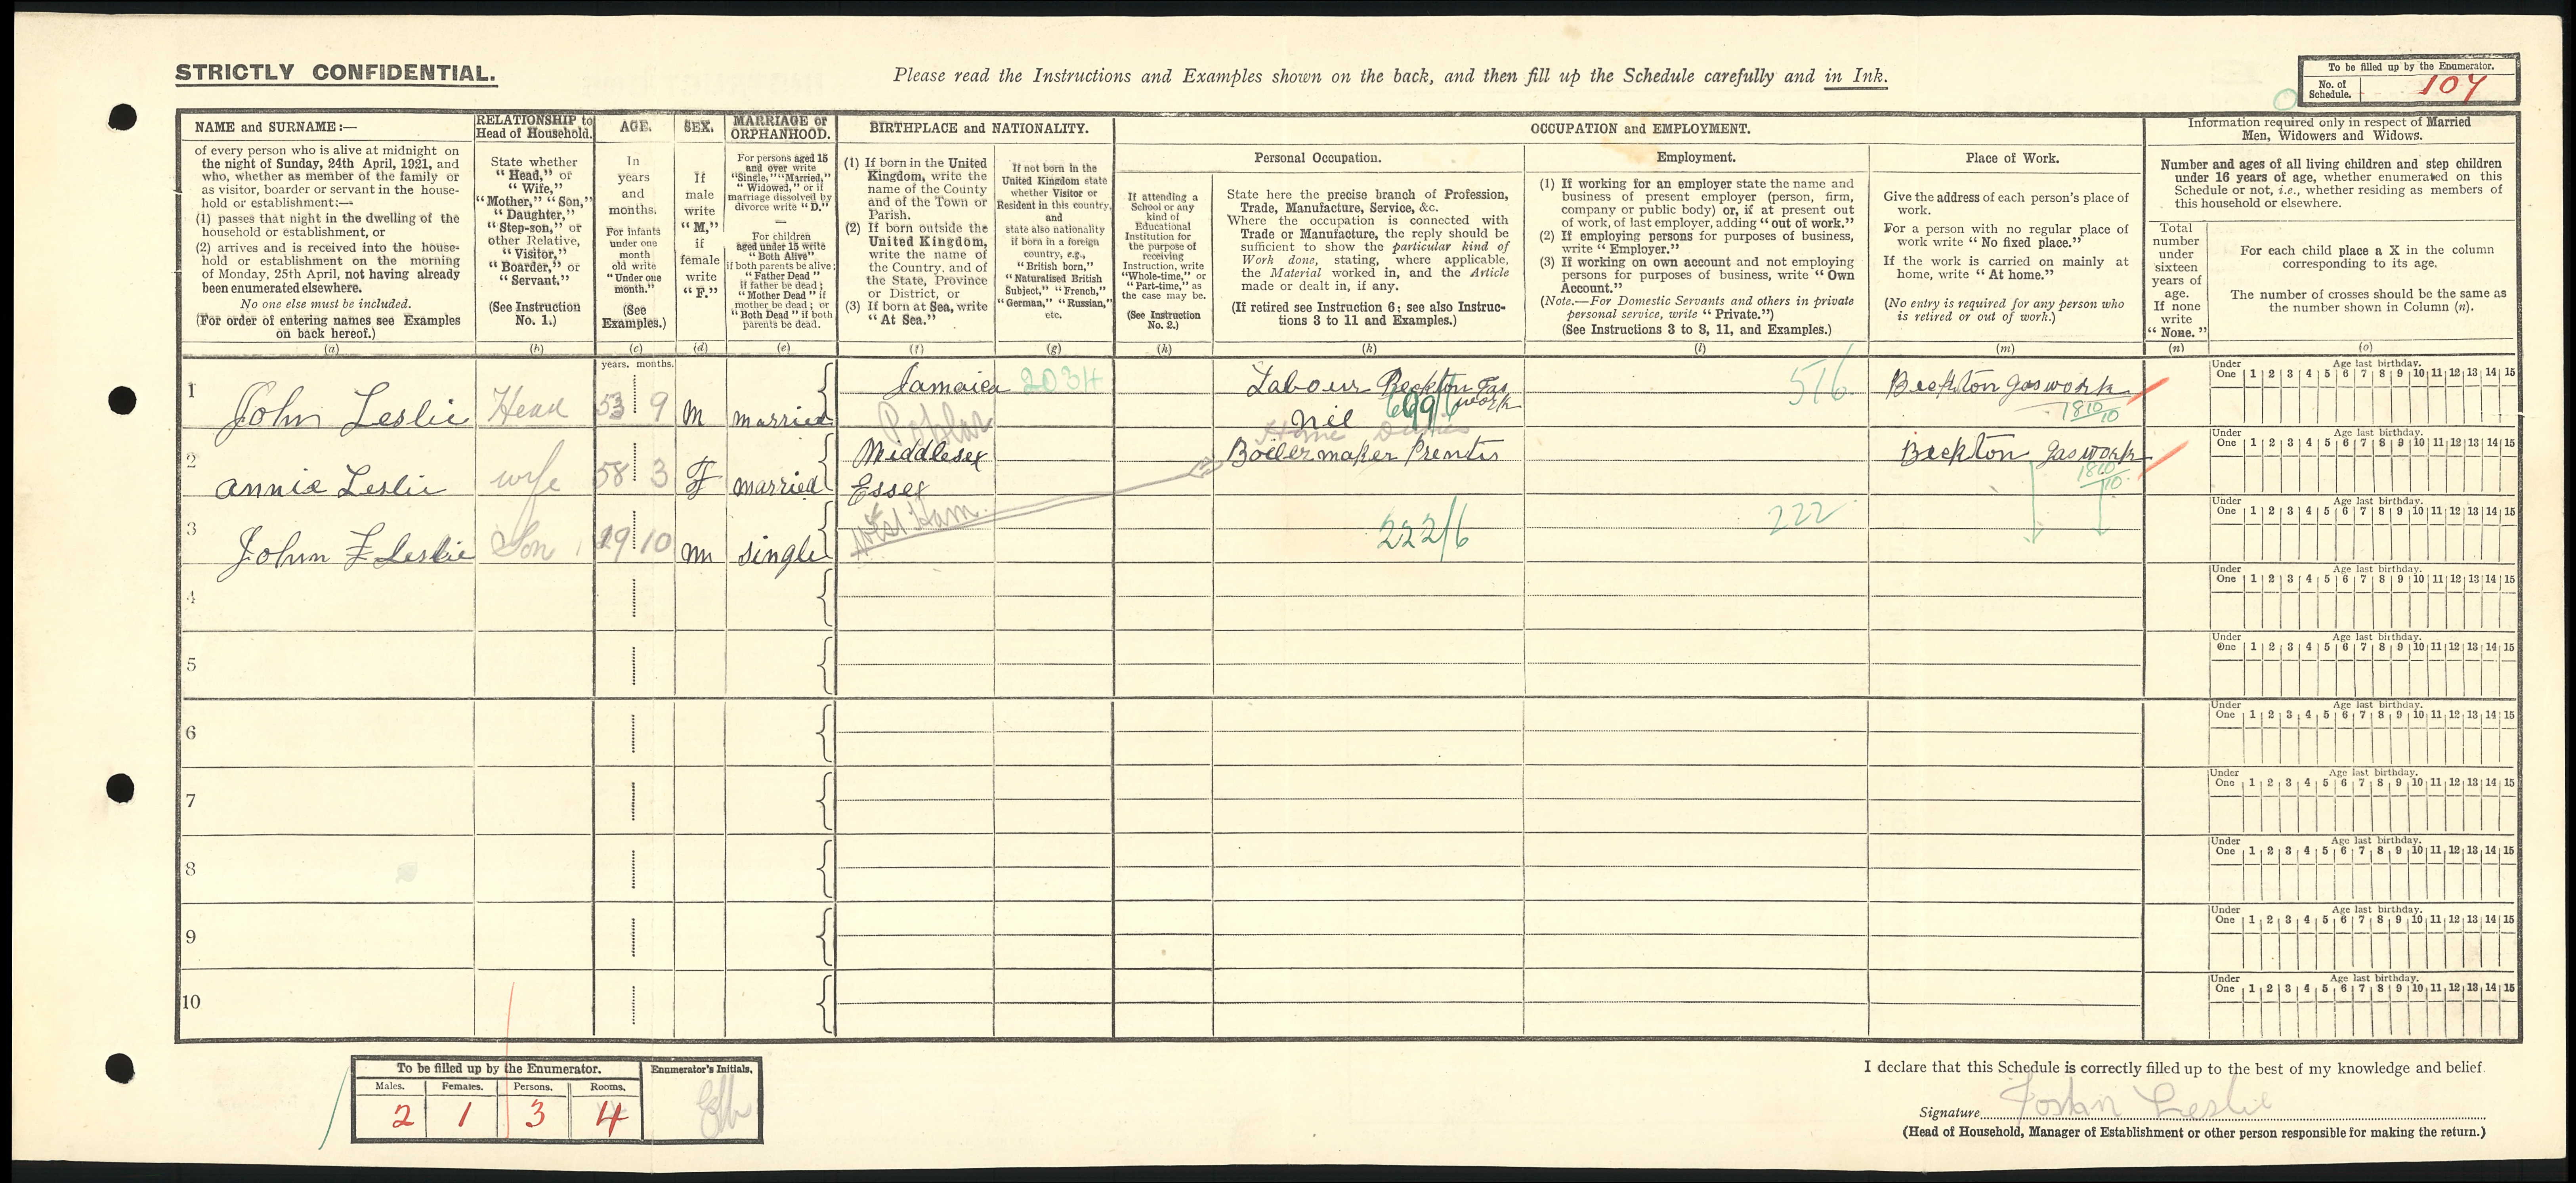 STRICTLY CONFIDENTIAL.
Please read the Instructions and Examples shown on the back, and then fill up the Schedule carefully and in Ink.
To be filled up by the Enumerator.
No. of Schedule. 104
NAME and SURNAME:—
of every person who is alive at midnight on
the night of Sunday, 24th April, 1921, and
who, whether as member of the family or
as visitor, boarder or servant in the house-
hold or establishment:—
(1) passes that night in the dwelling of the
household or establishment, or
(2) arrives and is received into the house-
hold or establishment on the morning
of Monday, 25th April, not having already
been enumerated elsewhere.
No one else must be included.
(For order of entering names see Examples
on back hereof.)
(a)
RELATIONSHIP to
Head of Household.
State whether
"Head," or
"Wife,"
"Mother," "Son,"
"Daughter,"
"Step-son," or
other Relative,
"Visitor,"
"Boarder," or
"Servant."
(See Instruction
No. 1.)
(b)
AGE.
In
years
and
months.
For infants
under one
month
old write
"Under one
month."
(See
Examples.)
(c)
SEX.
If
male
write
"M,"
if
female
write
"F."
(d)
MARRIAGE or
ORPHANHOOD.
For persons aged 15
and over write
"Single," "Married,"
"Widowed," or if
marriage dissolved by
divorce write "D."
—
For children
aged under 15 write
"Both Alive"
if both parents be alive;
"Father Dead"
if father be dead;
"Mother Dead" if
mother be dead; or
"Both Dead" if both
parents be dead.
(e)
BIRTHPLACE and NATIONALITY.
(1) If born in the United
Kingdom, write the
name of the County
and of the Town or
Parish.
(2) If born outside the
United Kingdom,
write the name of
the Country, and of
the State, Province
or District, or
(3) If born at Sea, write
"At Sea."
(f)
If not born in the
United Kingdom state
whether Visitor or
Resident in this country,
and
state also nationality
if born in a foreign
country, e.g.,
"British born,"
"Naturalised British
Subject," "French,"
"German," "Russian,"
etc.
(g)
OCCUPATION and EMPLOYMENT.
If attending a
School or any
kind of
Educational
Institution for
the purpose of
receiving
Instruction, write
"Whole-time," or
"Part-time," as
the case may be.
(See Instruction
No. 2.)
(h)
Personal Occupation.
State here the precise branch of Profession,
Trade, Manufacture, Service, &c.
Where the occupation is connected with
Trade or Manufacture, the reply should be
sufficient to show the particular kind of
Work done, stating, where applicable,
the Material worked in, and the Article
made or dealt in, if any.
(If retired see Instruction 6; see also Instruc-
tions 3 to 11 and Examples.)
(k)
Employment.
(1) If working for an employer state the name and
business of present employer (person, firm,
company or public body) or, if at present out
of work, of last employer, adding "out of work."
(2) If employing persons for purposes of business,
write "Employer."
(3) If working on own account and not employing
persons for purposes of business, write "Own
Account."
(Note.—For Domestic Servants and others in private
personal service, write "Private.")
(See Instructions 3 to 8, 11, and Examples.)
(l)
Place of Work.
Give the address of each person's place of
work.
For a person with no regular place of
work write "No fixed place."
If the work is carried on mainly at
home, write "At home."
(No entry is required for any person who
is retired or out of work.)
(m)
Information required only in respect of Married
Men, Widowers and Widows.
Number and ages of all living children and step children
under 16 years of age, whether enumerated on this
Schedule or not, i.e., whether residing as members of
this household or elsewhere.
Total
number
under
sixteen
years of
age.
If none
write
"None."
(n)
For each child place a X in the column
corresponding to its age.
The number of crosses should be the same as
the number shown in Column (n).
(o)
years. months.
1 John Leslie Head 53 9 M married Jamaica 2034 Labour Beckton Gas work 699/6 516 Beckton gas work 1810/10
Poplar Nil
Home Duties
2 Annie Leslie wife 58 3 F married Middlesex Boiler maker Prentis Beckton gas work 1810/10
Essex
West Ham
3 John F Leslie Son 19 10 m single 222/6 222
4
5
6
7
8
9
10
Under One Age last birthday. 1 2 3 4 5 6 7 8 9 10 11 12 13 14 15
Under One Age last birthday. 1 2 3 4 5 6 7 8 9 10 11 12 13 14 15
Under One Age last birthday. 1 2 3 4 5 6 7 8 9 10 11 12 13 14 15
Under One Age last birthday. 1 2 3 4 5 6 7 8 9 10 11 12 13 14 15
Under One Age last birthday. 1 2 3 4 5 6 7 8 9 10 11 12 13 14 15
Under One Age last birthday. 1 2 3 4 5 6 7 8 9 10 11 12 13 14 15
Under One Age last birthday. 1 2 3 4 5 6 7 8 9 10 11 12 13 14 15
Under One Age last birthday. 1 2 3 4 5 6 7 8 9 10 11 12 13 14 15
Under One Age last birthday. 1 2 3 4 5 6 7 8 9 10 11 12 13 14 15
Under One Age last birthday. 1 2 3 4 5 6 7 8 9 10 11 12 13 14 15
To be filled up by the Enumerator.
Males. Females. Persons. Rooms.
2 1 3 4
Enumerator's Initials.
I declare that this Schedule is correctly filled up to the best of my knowledge and belief.
Signature John Leslie
(Head of Household, Manager of Establishment or other person responsible for making the return.)